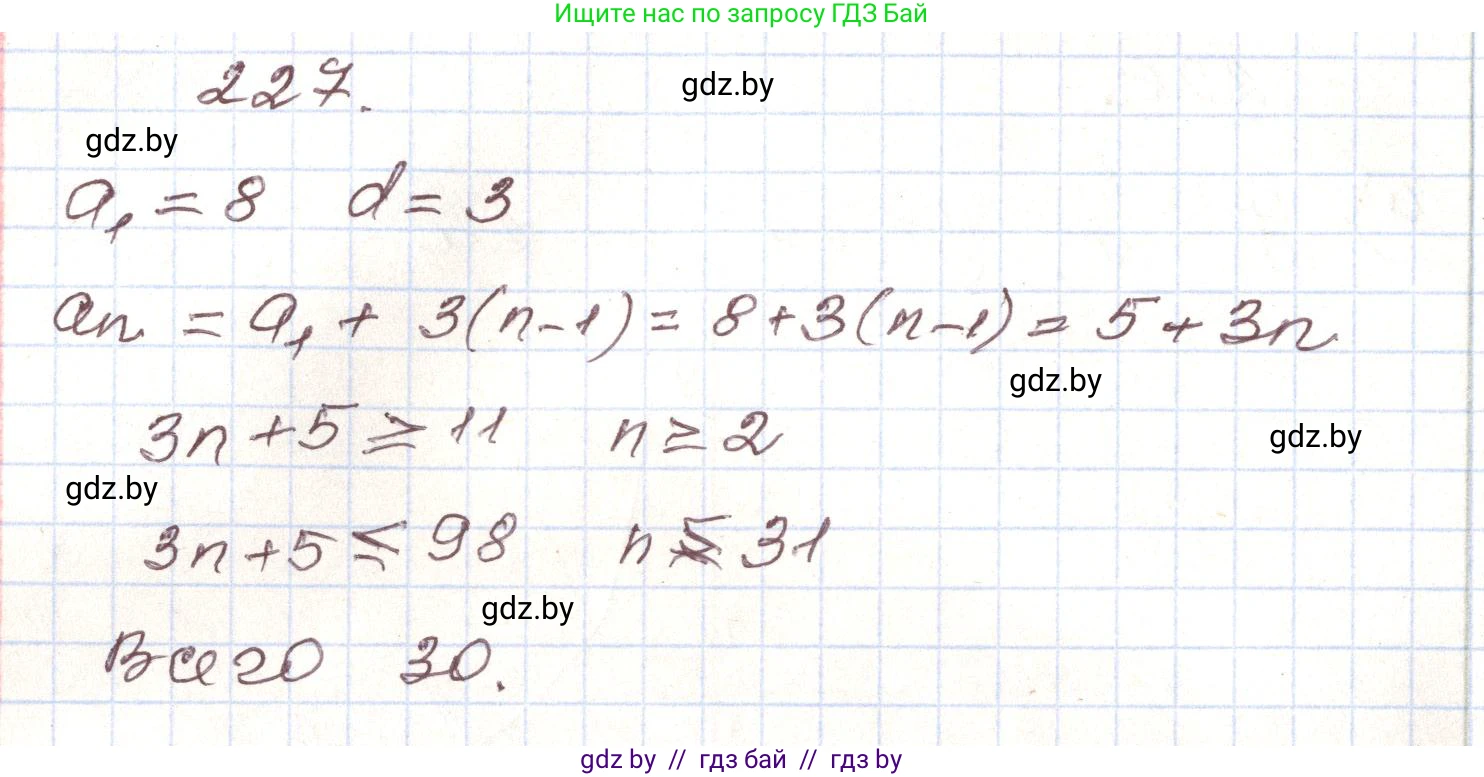 Ищите нас по запросу ГДЗ Бай
227.
gdz.by
gdz.by
a₁ = 8 d = 3
an = a₁ + 3(n-1) = 8+3(n-1) = 5+3n
gdz.by
3n+5 ≥ 11 n ≥ 2
gdz.by
gdz.by
3n+5 ≤ 98 n ≤ 31
gdz.by
Всего 30.
gdz.by // гдз бай // гдз by